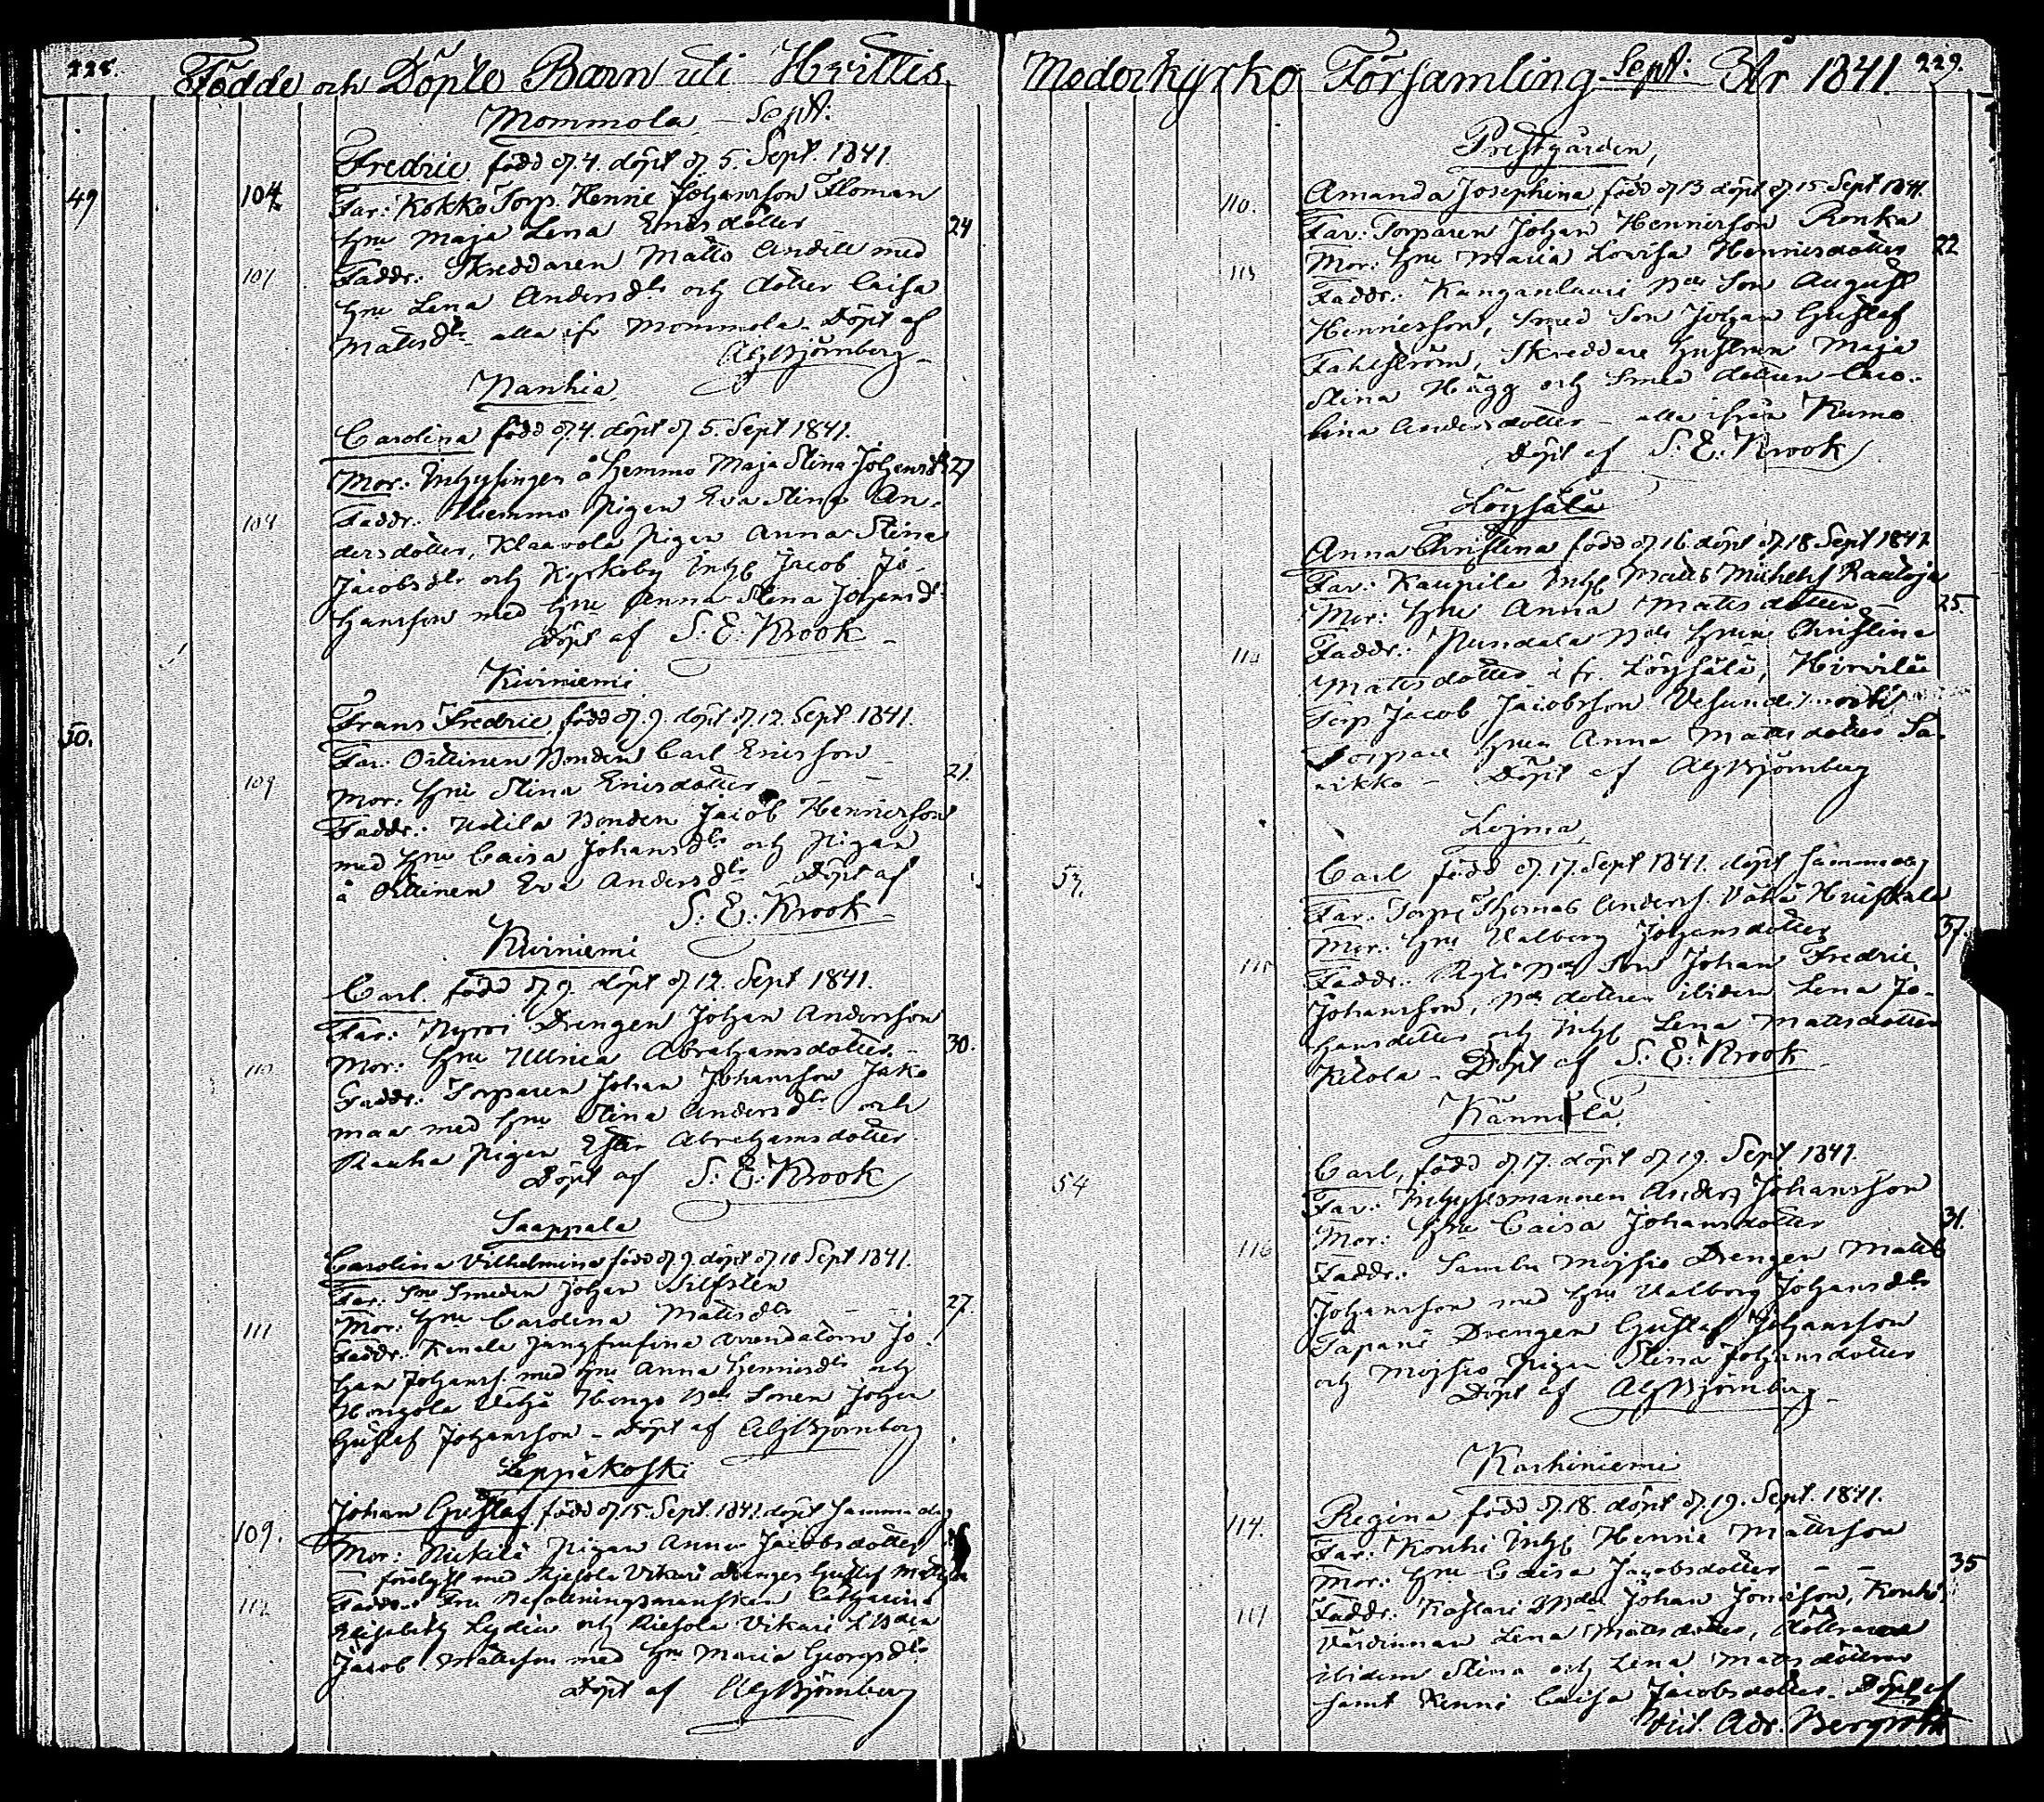 228.
Födde och Döpte Barn uti Hvittis
Mommola - Sept:
Fredric född d. 4. döpt d. 5. Sept. 1841.
49 104 Far: Kokko Torp. Henric Johansson Floman
hru Maja Lena Ericsdotter 24
107 Faddr: Skreddaren Matts Andell med
hru Lena Andersdr och dotter Caisa
Mattsdr alla ifr Mommola. Döpt af
Alg Björnberg
Nanhia
Carolina född d. 4. döpt d. 5. Sept 1841.
Mor: Inhysingen å Hemmo Maja Stina Johansdr 27
104 Faddr: Hemmo Pigan Eva Stina An-
dersdotter, Klaavola Pigan Anna Stina
Jacobsdr och Kyrkoby Inhs Jacob Jo-
hansson med hru Anna Stina Johansdr
Döpt af S. E. Krook
Kiviniemi
Frans Fredric född d. 9. döpt d. 12. Sept. 1841.
50. Far: Ottinen Bonden Carl Ericsson
109 Mor: hru Stina Ericsdotter - - 21.
Faddr: Uotila Bonden Jacob Henricsson
med hru Caisa Johansdr och Pigan
å Ottinen Eva Andersdr Döpt af
S. E. Krook
Kiviniemi
Carl. född d. 9. döpt d. 12. Sept 1841.
Far: Nyrri Drengen Johan Andersson
110 Mor: hru Ulrica Abrahamsdotter. 30.
Faddr: Torparen Johan Johansson Jako
maa med hru Stina Andersdr och
Rauha Pigan Ester Abrahamsdotter
Döpt af S. E. Krook
Saappala
Carolina Vilhelmina född d. 9. döpt d. 10 Sept 1841.
Far: Smeden Johan Silfsten
111 Mor: hru Carolina Mattsdr - - 27.
Faddr: Kanala Arrendatorn Jo
han Johans. med hru Anna Henricsdr och
Hongola Vähä Hongo Bde Sonen Johan
Gustaf Johansson - Döpt af Alg Björnberg
Leppäkoski
Johan Gustaf född d. 15. Sept. 1841. döpt samma dag
109. Mor: Pigan Anna Jacobsdotter
med Vikari Drengen Gustaf
112 Faddr: Fru Catharina
Elisabeth Lydia och Riesola Vikari
Jacob Mattsson med hru Maria Georgsdr
Döpt af Alg Björnberg
Moderkyrko Församling Sept: År 1841. 229.
Prestgården,
110. Amanda Josephina född d. 13 döpt d. 15. Sept 1841.
Far: Torparen Johan Henricsson Ronka
113 Mor: hru Maria Lovisa Henricsdotter 22
Faddr: Kanganlauri Bde Son August
Henricsson, Smed Son Johan Gustaf
Fahlström, Skreddare hustrun Maja
Stina Hägg och Smed dottern Caro-
lina Andersdotter - alla ifrån Kumo
Döpt af S. E. Krook
Löysälä
Anna Christina född d. 16 döpt d. 18 Sept 1841.
Far: Kaupila Inhs Matts Michels Rautoja
Mor: hru Anna Mattsdotter - 25.
114 Faddr: Nundala Bde hrun Christina
Mattsdotter i fr. Löysälä, Hirvilä
Torp Jacob Jacobsson
Torpare hrun Anna Mattsdotter Sa-
rikko - Döpt af Alg Björnberg
Loima
53. Carl född d. 17. Sept 1841. döpt samma dag
Far: Torp: Thomas Anders. Vähä Huiskala
Mor: hru Valborg Johansdotter 37.
115 Faddr: Bde Son Johan Fredric
Johansson, Bde dottren ibidem Lena Jo-
hansdotter och Inhs Lena Mattsdotter
Kitola - Döpt af S. E. Krook
Kännölä
54 Carl, född d. 17. döpt d. 19. Sept 1841.
Far: Inhysesmannen Anders Johansson
Mor: hru Caisa Johansdotter 31.
116 Faddr: Samlu Mojsio Drengen Matts
Johansson med hru Valborg Johansdr
Tapani Drengen Gustaf Johansson
och Mojsio Pigan Stina Johansdotter
Döpt af Alg Björnberg
Karhiniemi
114. Regina född d. 18. döpt d. 19. Sept. 1841.
Far: Konhi Inhs Henric Mattsson
Mor: hru Caisa Jacobsdotter - - 35
117 Faddr: Kaslari Bde Johan Jönsson, Konhi
Värdinnan Lena Mattsdotter, döttrarne
ibidem Stina och Lena Mattsdöttrar
samt Caisa Jacobsdotter. Döpt af
Vict. Adr. Bergroth